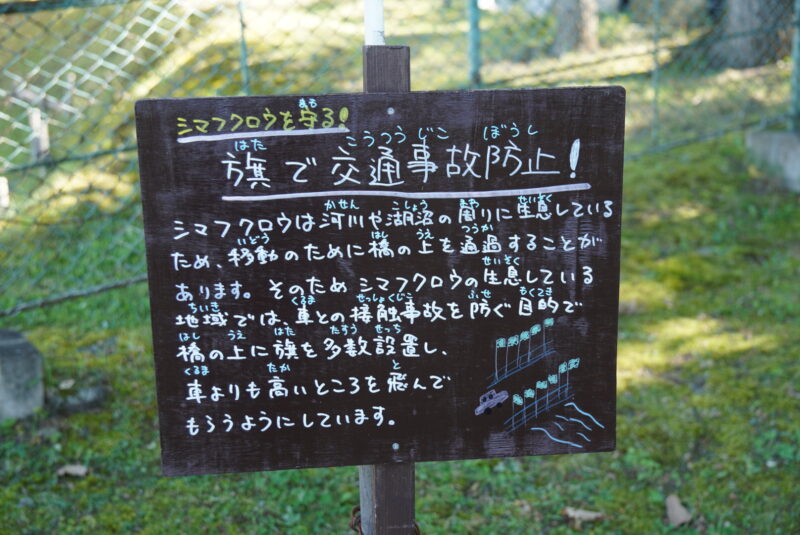 シマフクロウを守る!
旗で交通事故防止!
シマフクロウは河川や湖沼の周りに生息している
ため、移動のために橋の上を通過することが
あります。そのためシマフクロウの生息している
地域では、車との接触事故を防ぐ目的で
橋の上に旗を多数設置し、
車よりも高いところを飛んで
もらうようにしています。